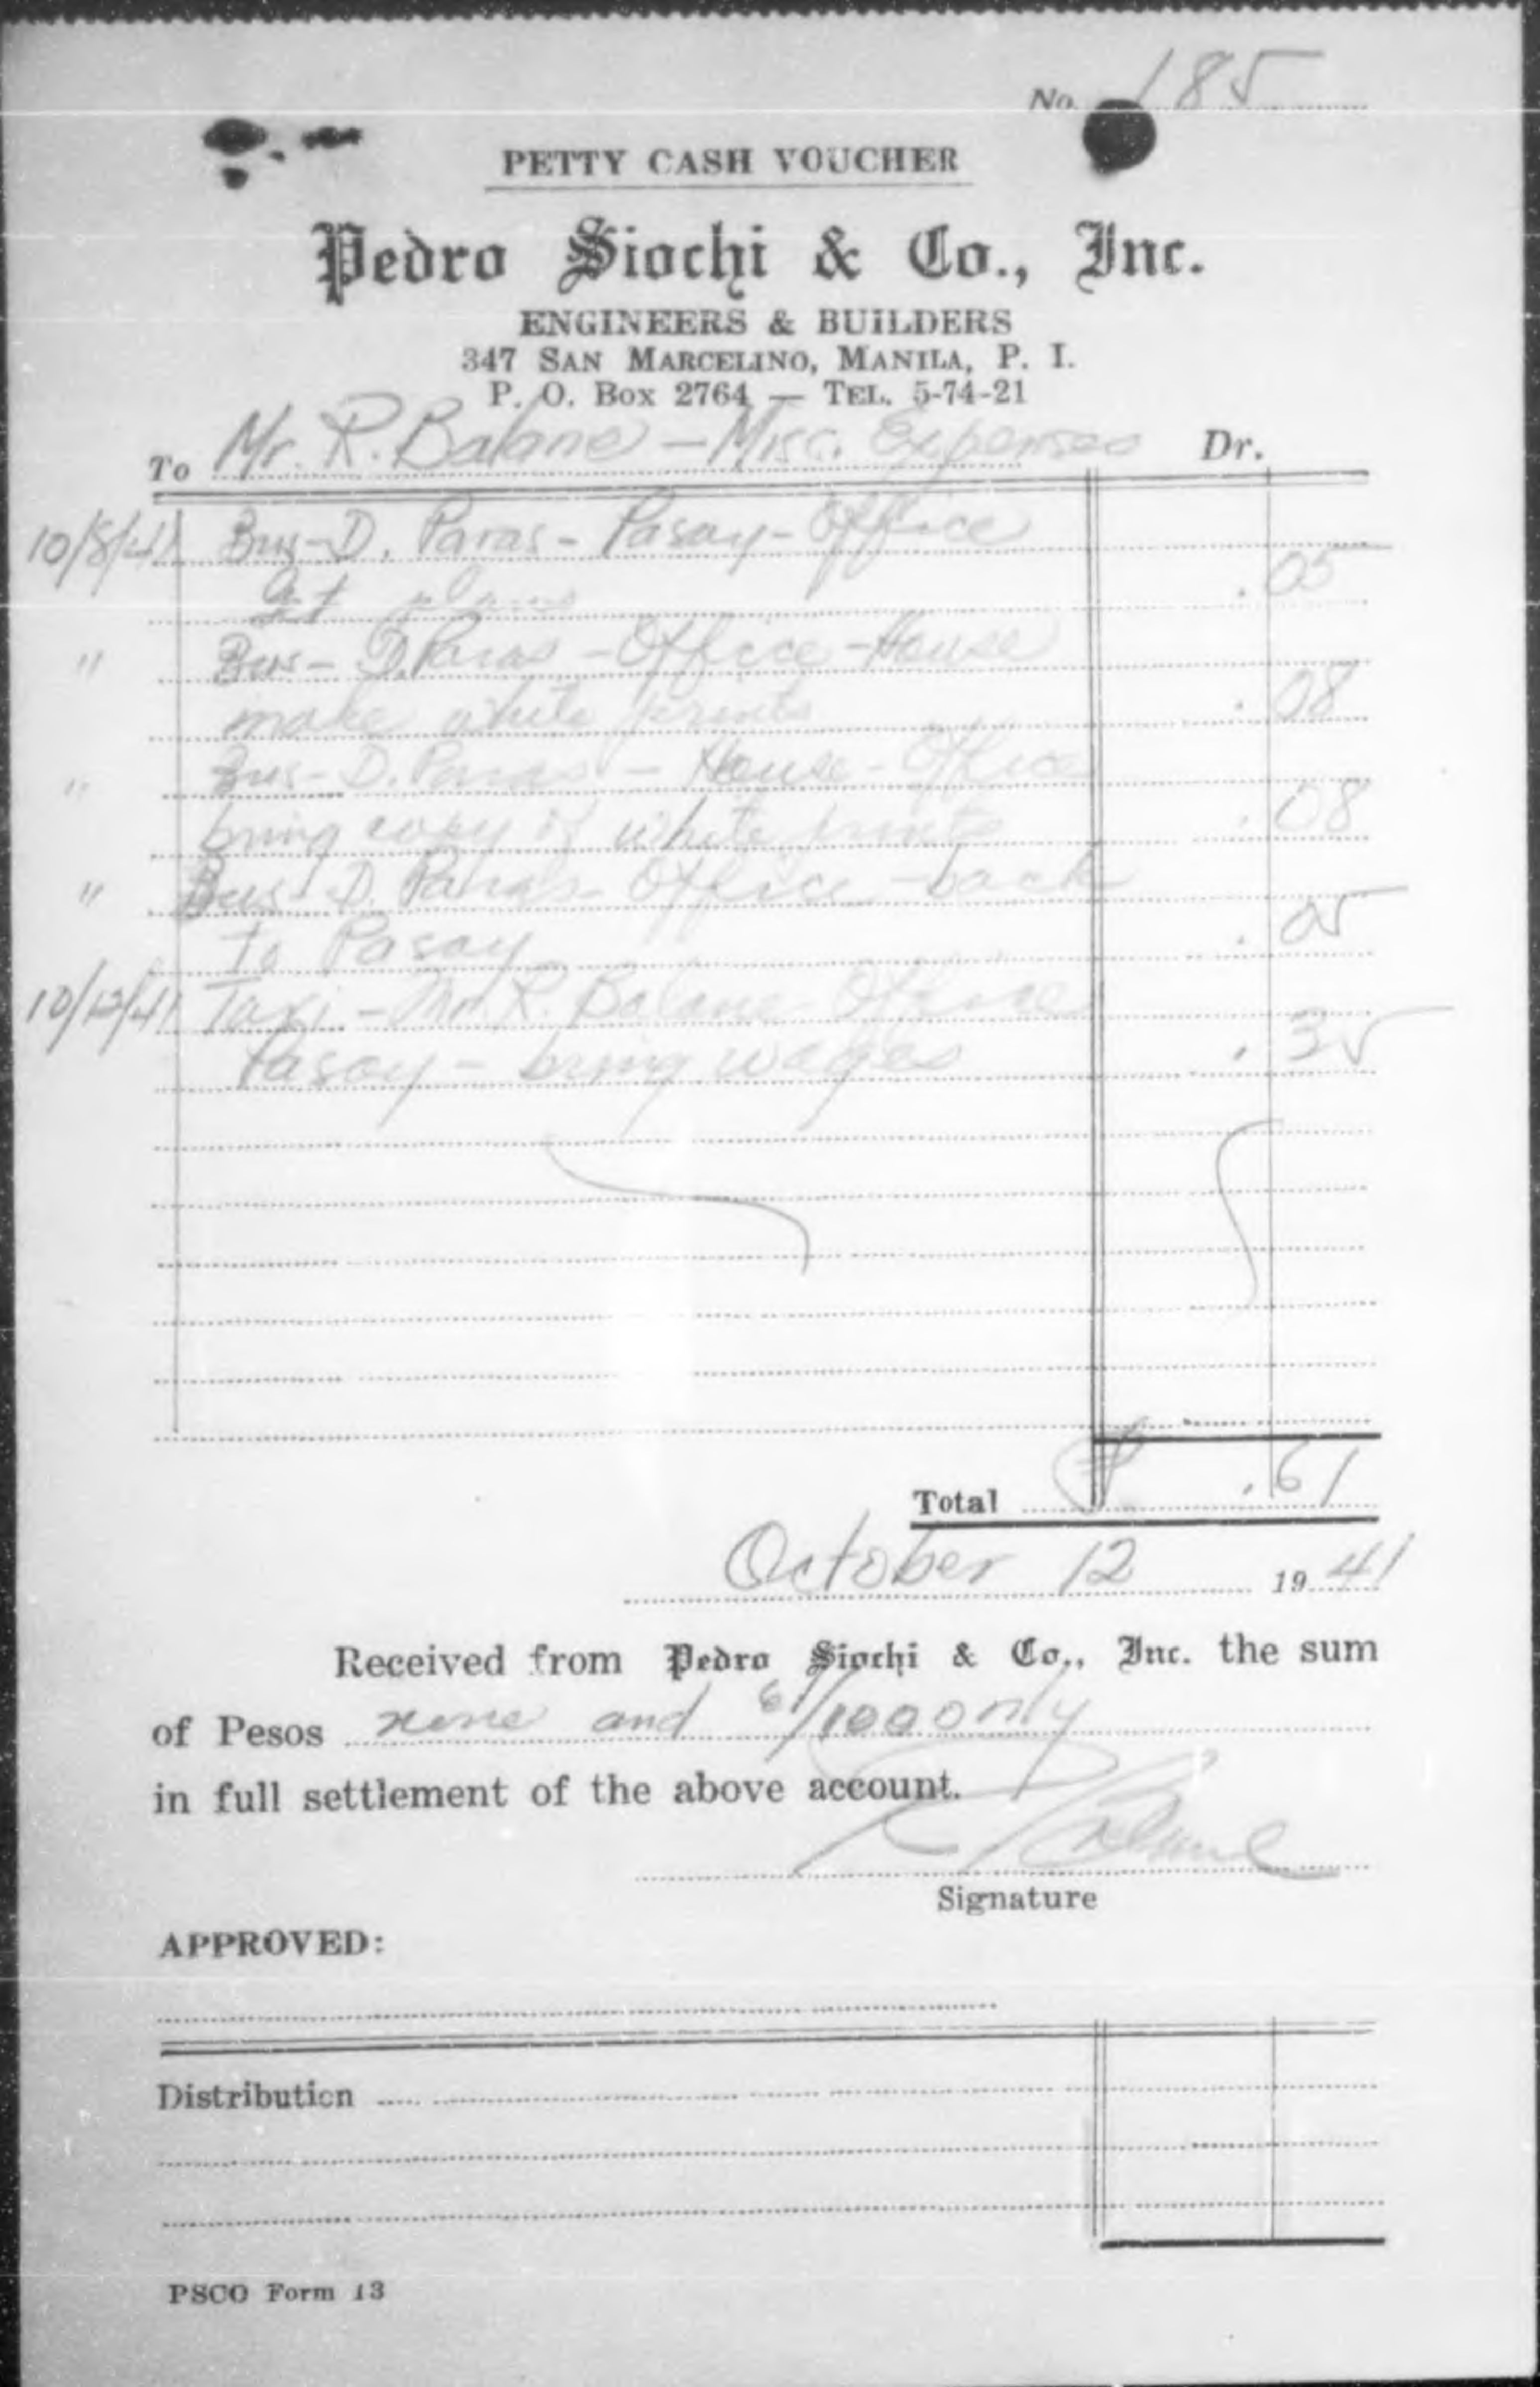 No. 185
PETTY CASH VOUCHER
Pedro Siochi & Co., Inc.
ENGINEERS & BUILDERS
347 SAN MARCELINO, MANILA, P. I.
P. O. Box 2764 — TEL. 5-74-21
To Mr. R. Balane - Misc. Expenses Dr.
10/8/41 Bus - D. Paras - Pasay - Office
Get plans .05
" Bus - D. Paras - Office - House
make white prints .08
" Bus - D. Paras - House - Office
bring copy of white prints .08
" Bus - D. Paras - Office - back
to Pasay .05
10/12/41 Taxi - Mr. R. Balane - Office
Pasay - bring wages .35
Total ₱ .61
October 12 1941
Received from Pedro Siochi & Co., Inc. the sum
of Pesos none and 61/100 only
in full settlement of the above account.
R Balane
Signature
APPROVED:
Distribution
PSCO Form 13